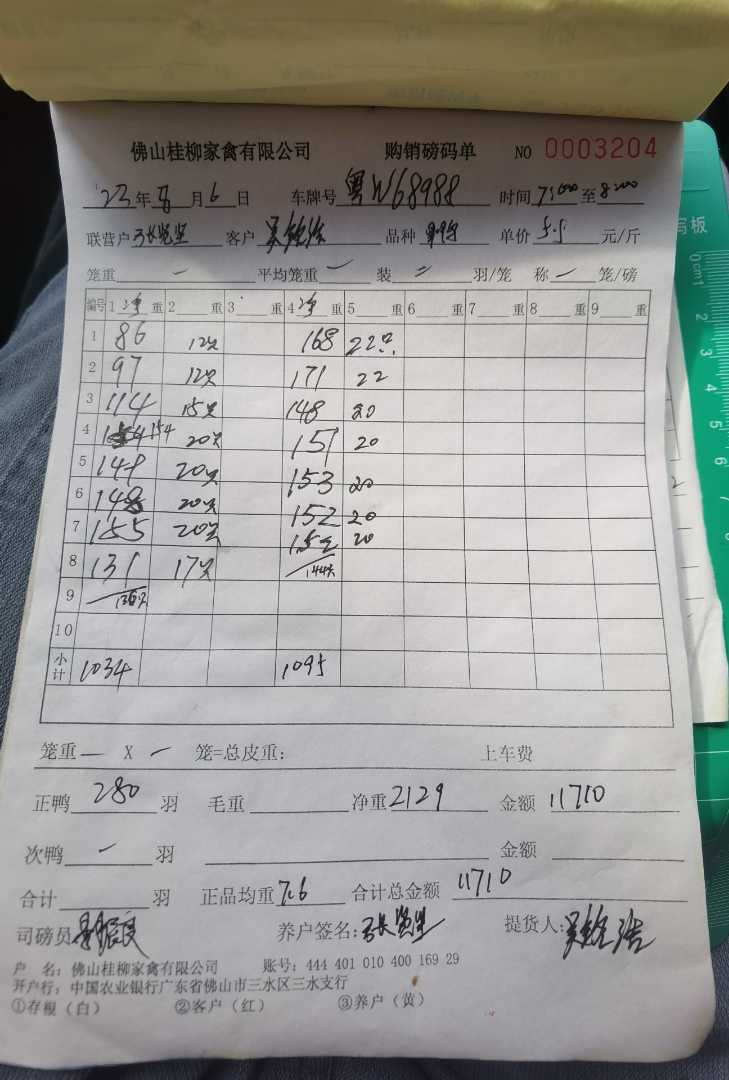 佛山桂柳家禽有限公司 购销磅码单 NO 0003204
23年8月6日 车牌号 粤W68988 时间 7:00 至 8:00
联营户 客户 品种 单价 5.5 元/斤
笼重 一 平均笼重 一 装 羽/笼 称 一 笼/磅
编号 1 净 重 2 重 3 重 4 净 重 5 重 6 重 7 重 8 重 9 重
1 86 12只 168 22只
2 97 12只 171 22
3 114 15只 148 20
4 154 20只 151 20
5 149 20只 153 20
6 148 20只 152 20
7 155 20只 152 20
8 131 17只 144只
9 136只
10
小计 1034 1095
笼重 一 X 一 笼=总皮重: 上车费
正鸭 280 羽 毛重 净重 2129 金额 11710
次鸭 一 羽 金额
合计 羽 正品均重 7.6 合计总金额 11710
司磅员: 养户签名: 提货人:
户 名: 佛山桂柳家禽有限公司 账号: 444 401 010 400 169 29
开户行: 中国农业银行广东省佛山市三水区三水支行
①存根(白) ②客户(红) ③养户(黄)
写板
0cm1
2
3
4
5
6